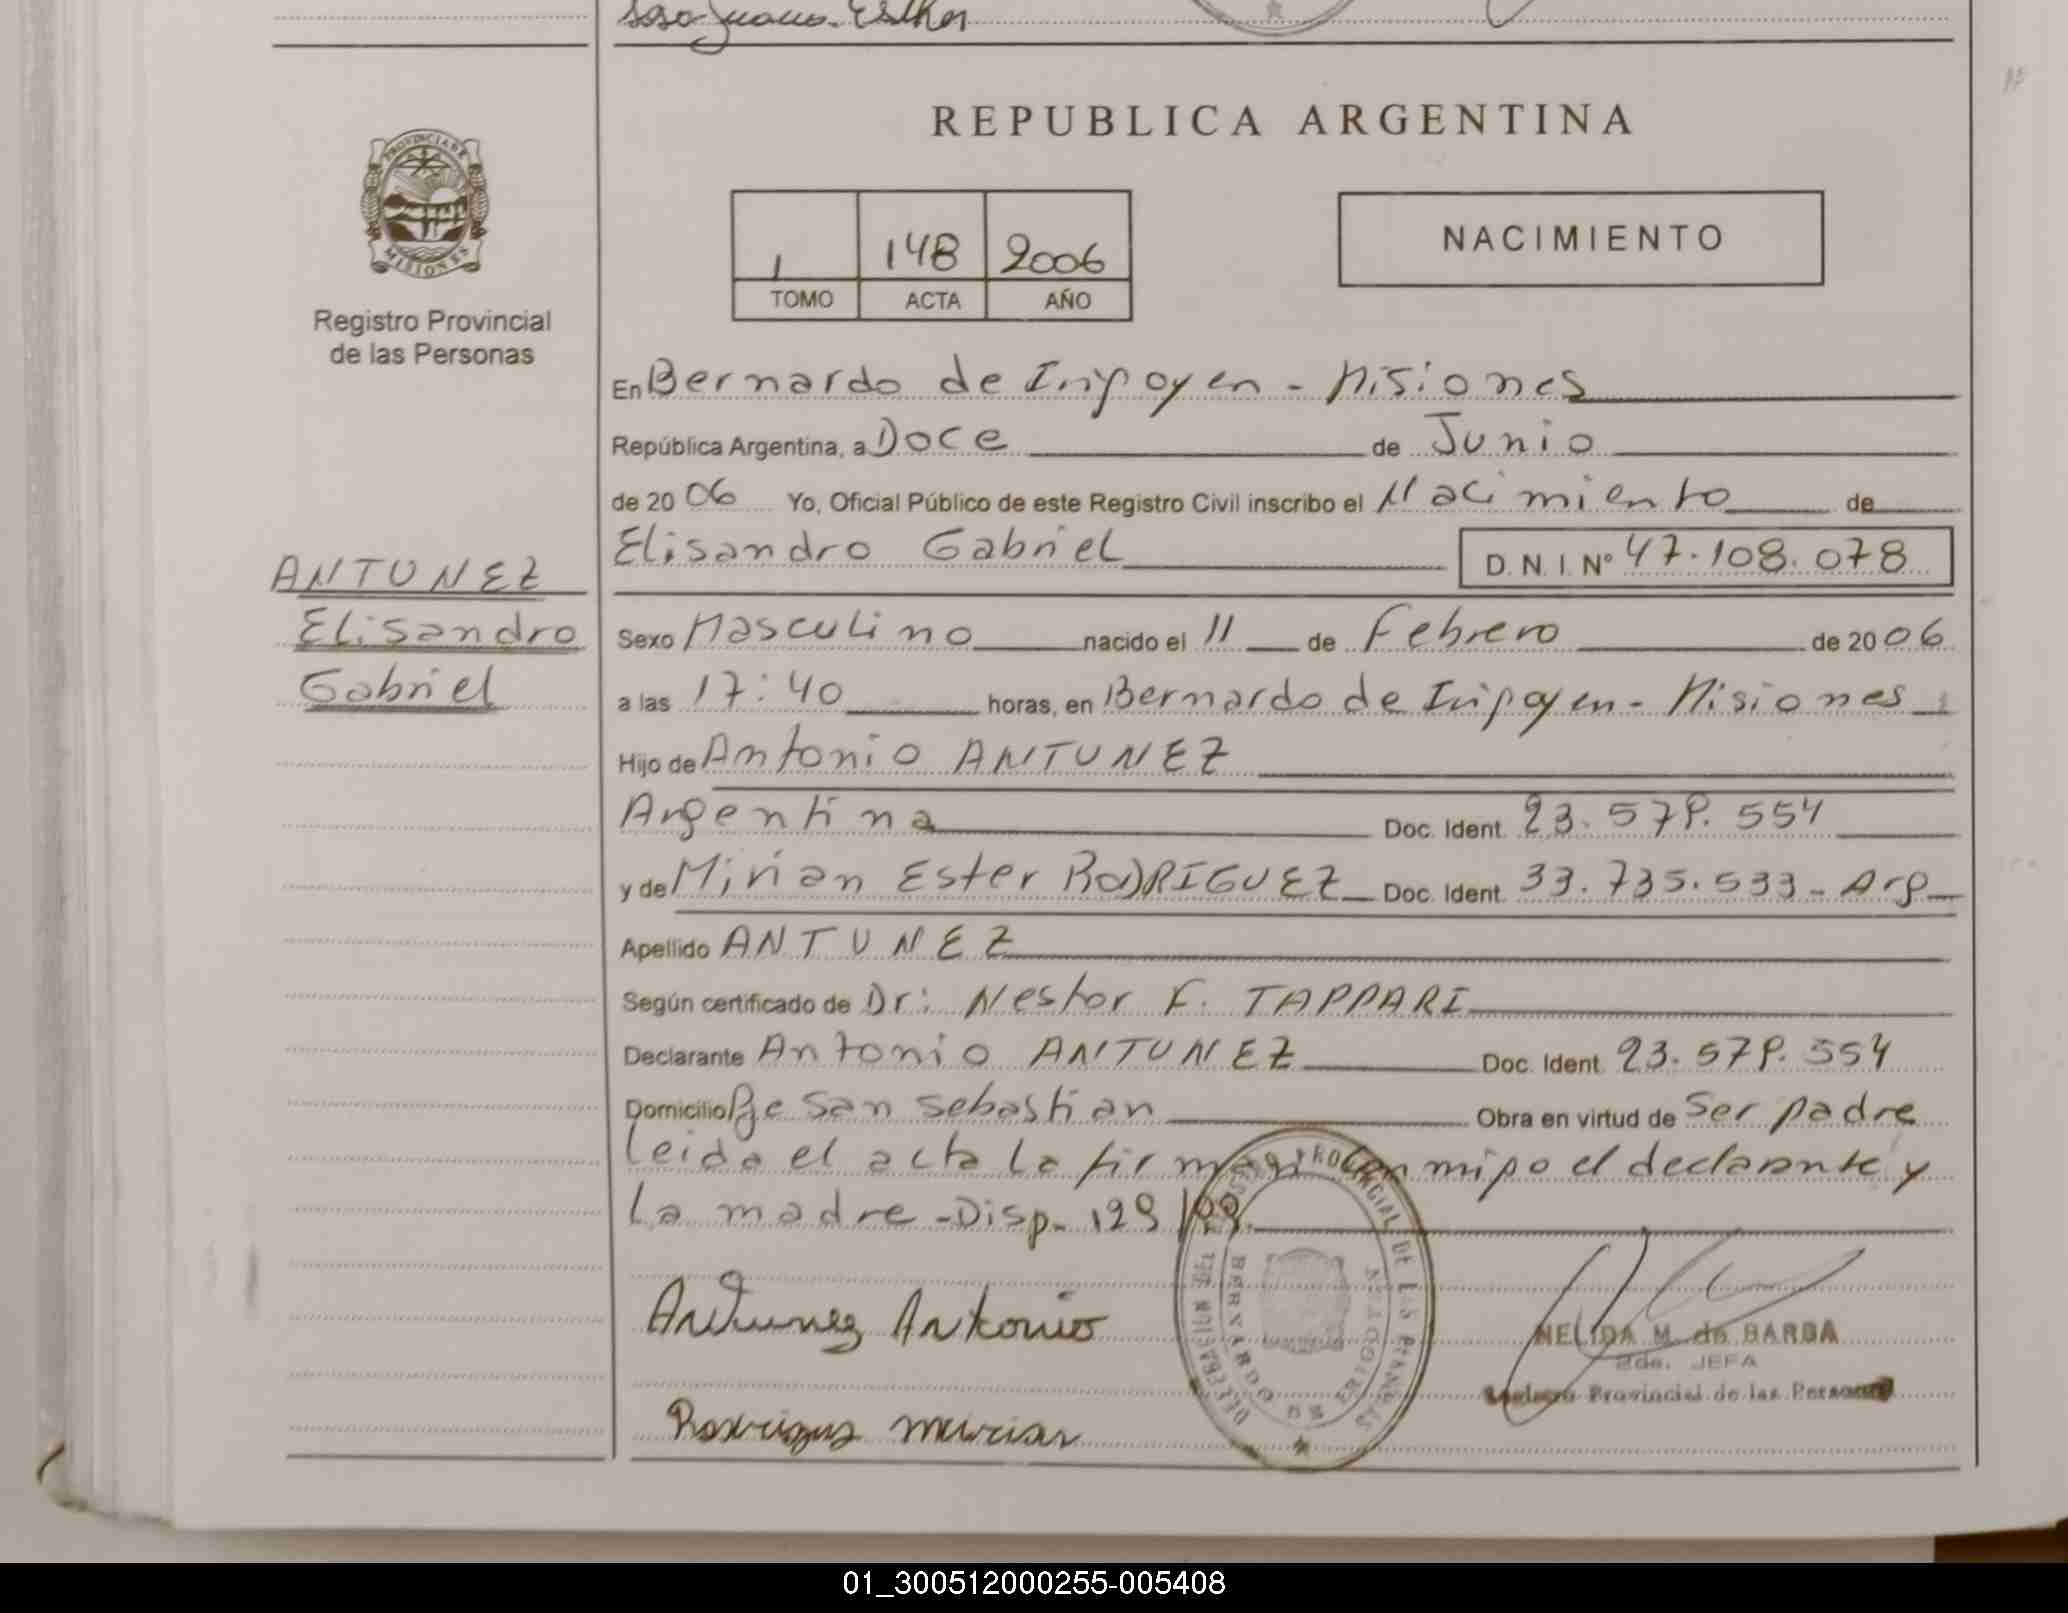 Sosa Juana Esther
PROVINCIA DE
MISIONES
Registro Provincial
de las Personas
REPUBLICA ARGENTINA
1 148 2006
TOMO ACTA AÑO
NACIMIENTO
En Bernardo de Irigoyen - Misiones
República Argentina, a Doce de Junio
de 2006 Yo, Oficial Público de este Registro Civil inscribo el Nacimiento de
Elisandro Gabriel D. N. I. Nº 47.108.078
ANTUNEZ
Elisandro
Gabriel
Sexo Masculino nacido el 11 de Febrero de 2006
a las 17:40 horas, en Bernardo de Irigoyen - Misiones
Hijo de Antonio ANTUNEZ
Argentina Doc. Ident. 23.579.554
y de Mirian Ester RODRIGUEZ Doc. Ident. 33.735.533 - Arg
Apellido ANTUNEZ
Según certificado de Dr: Nestor F. TAPPARI
Declarante Antonio ANTUNEZ Doc. Ident. 23.579.554
Domicilio Pje San Sebastian Obra en virtud de Ser padre
leida el acta la firman conmigo el declarante y
la madre - Disp. 129/
REGISTRO PROVINCIAL DE LAS PERSONAS
BERNARDO DE IRIGOYEN
Antunez Antonio
NELIDA M. de BARBA
2da. JEFA
Registro Provincial de las Personas
Rodriguez mirian
01_300512000255-005408